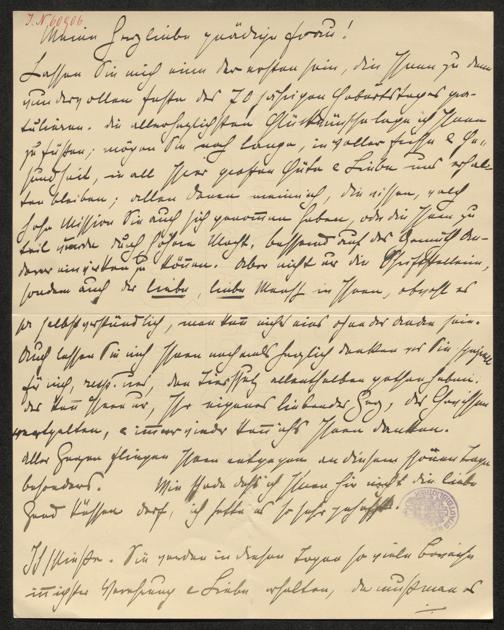 J.N. 60906
Meine herzliebe gnädige Frau!
Lassen Sie mich eine der ersten sein, die Ihnen zu dem
wundervollen Feste des 70 jährigen Geburtstages gra-
tulieren. Die allerherzlichsten Glückwünsche lege ich Ihnen
zu Füßen; mögen Sie noch lange, in voller Frische & Ge-
sundheit, in all Ihrer großen Güte & Liebe uns erhal-
ten bleiben; allen denen meine ich, die wissen, welch
hohe Mission Sie auf sich genommen haben, oder die Ihnen zu
teil wurde durch höhere Macht, bessernd auf das Gemüth An-
derer einwirken zu können. Aber nicht nur die Schriftstellerin,
sondern auch der liebe, liebe Mensch in Ihnen, obwohl es
so selbstverständlich, man kann nicht eins ohne das andere sein.
Auch lassen Sie mich Ihnen nochmals herzlich danken was Sie speziell
für mich, resp. uns, den Tierschutz allenthalben gethan haben.
Das kann Ihnen nur, Ihr eigenes liebendes Herz, das Gewissen
vergelten, & immer wieder kann ich Ihnen danken.
Aller Herzen fliegen Ihnen entgegen an diesem schönen Tage
besonders. Wie schade daß ich Ihnen hier nicht die liebe
Hand küssen darf, ich hatte es so sehr gehofft.
Ich schließe. Sie werden in diesen Tagen so viele Beweise
innigster Verehrung & Liebe erhalten, da muß man es